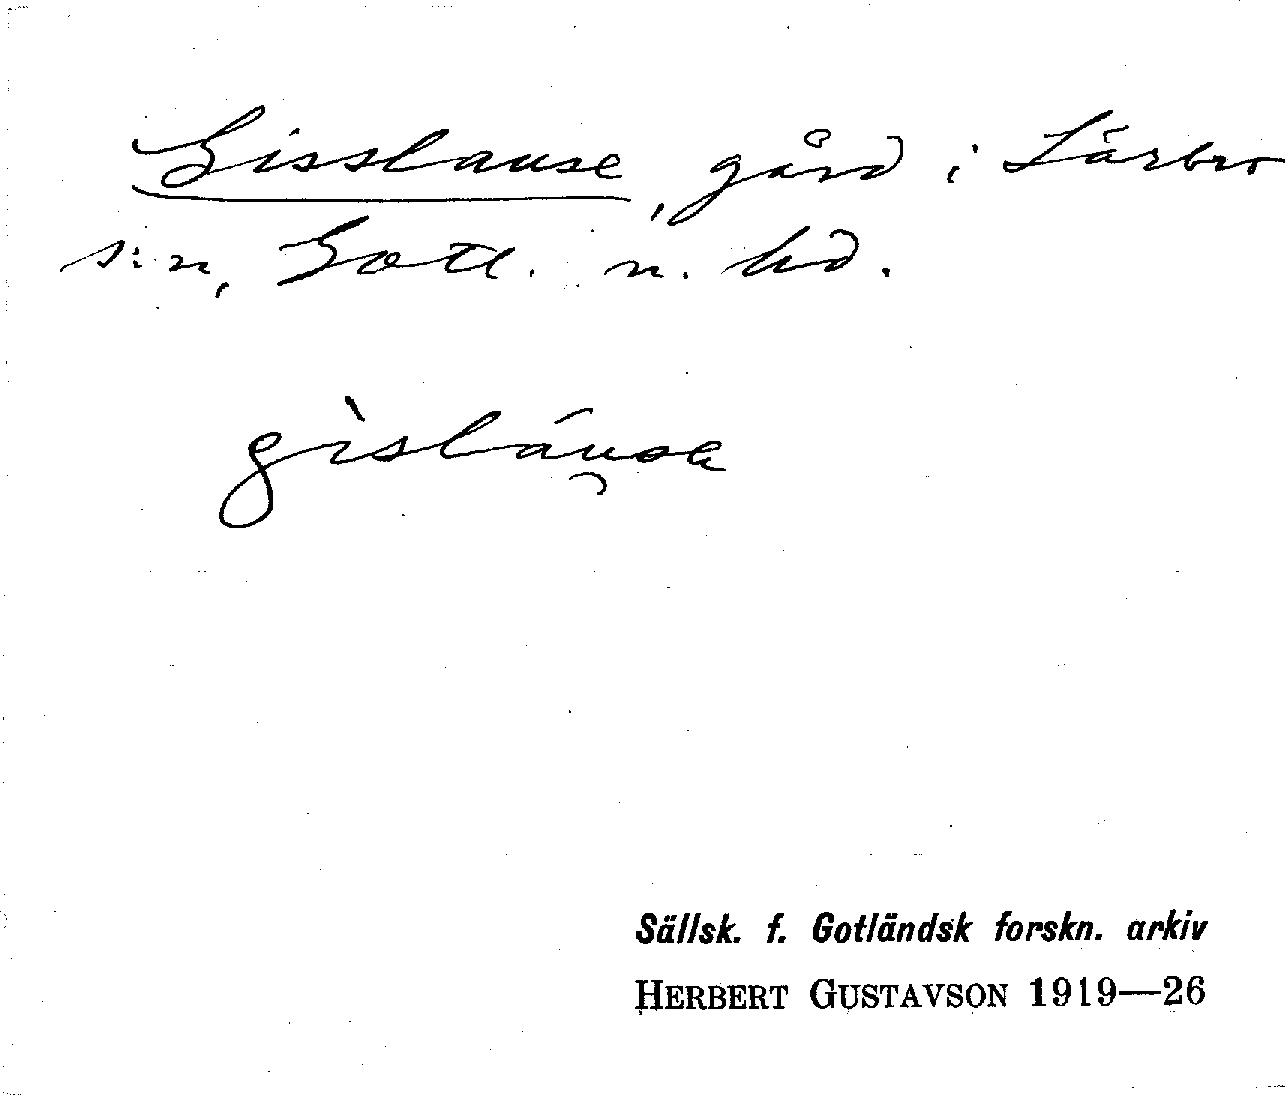 Gisslause, gård i Lärbro
s:n, Gotl. n. hd.
gìsláu̯sa
Sällsk. f. Gotländsk forskn. arkiv
HERBERT GUSTAVSON 1919—26